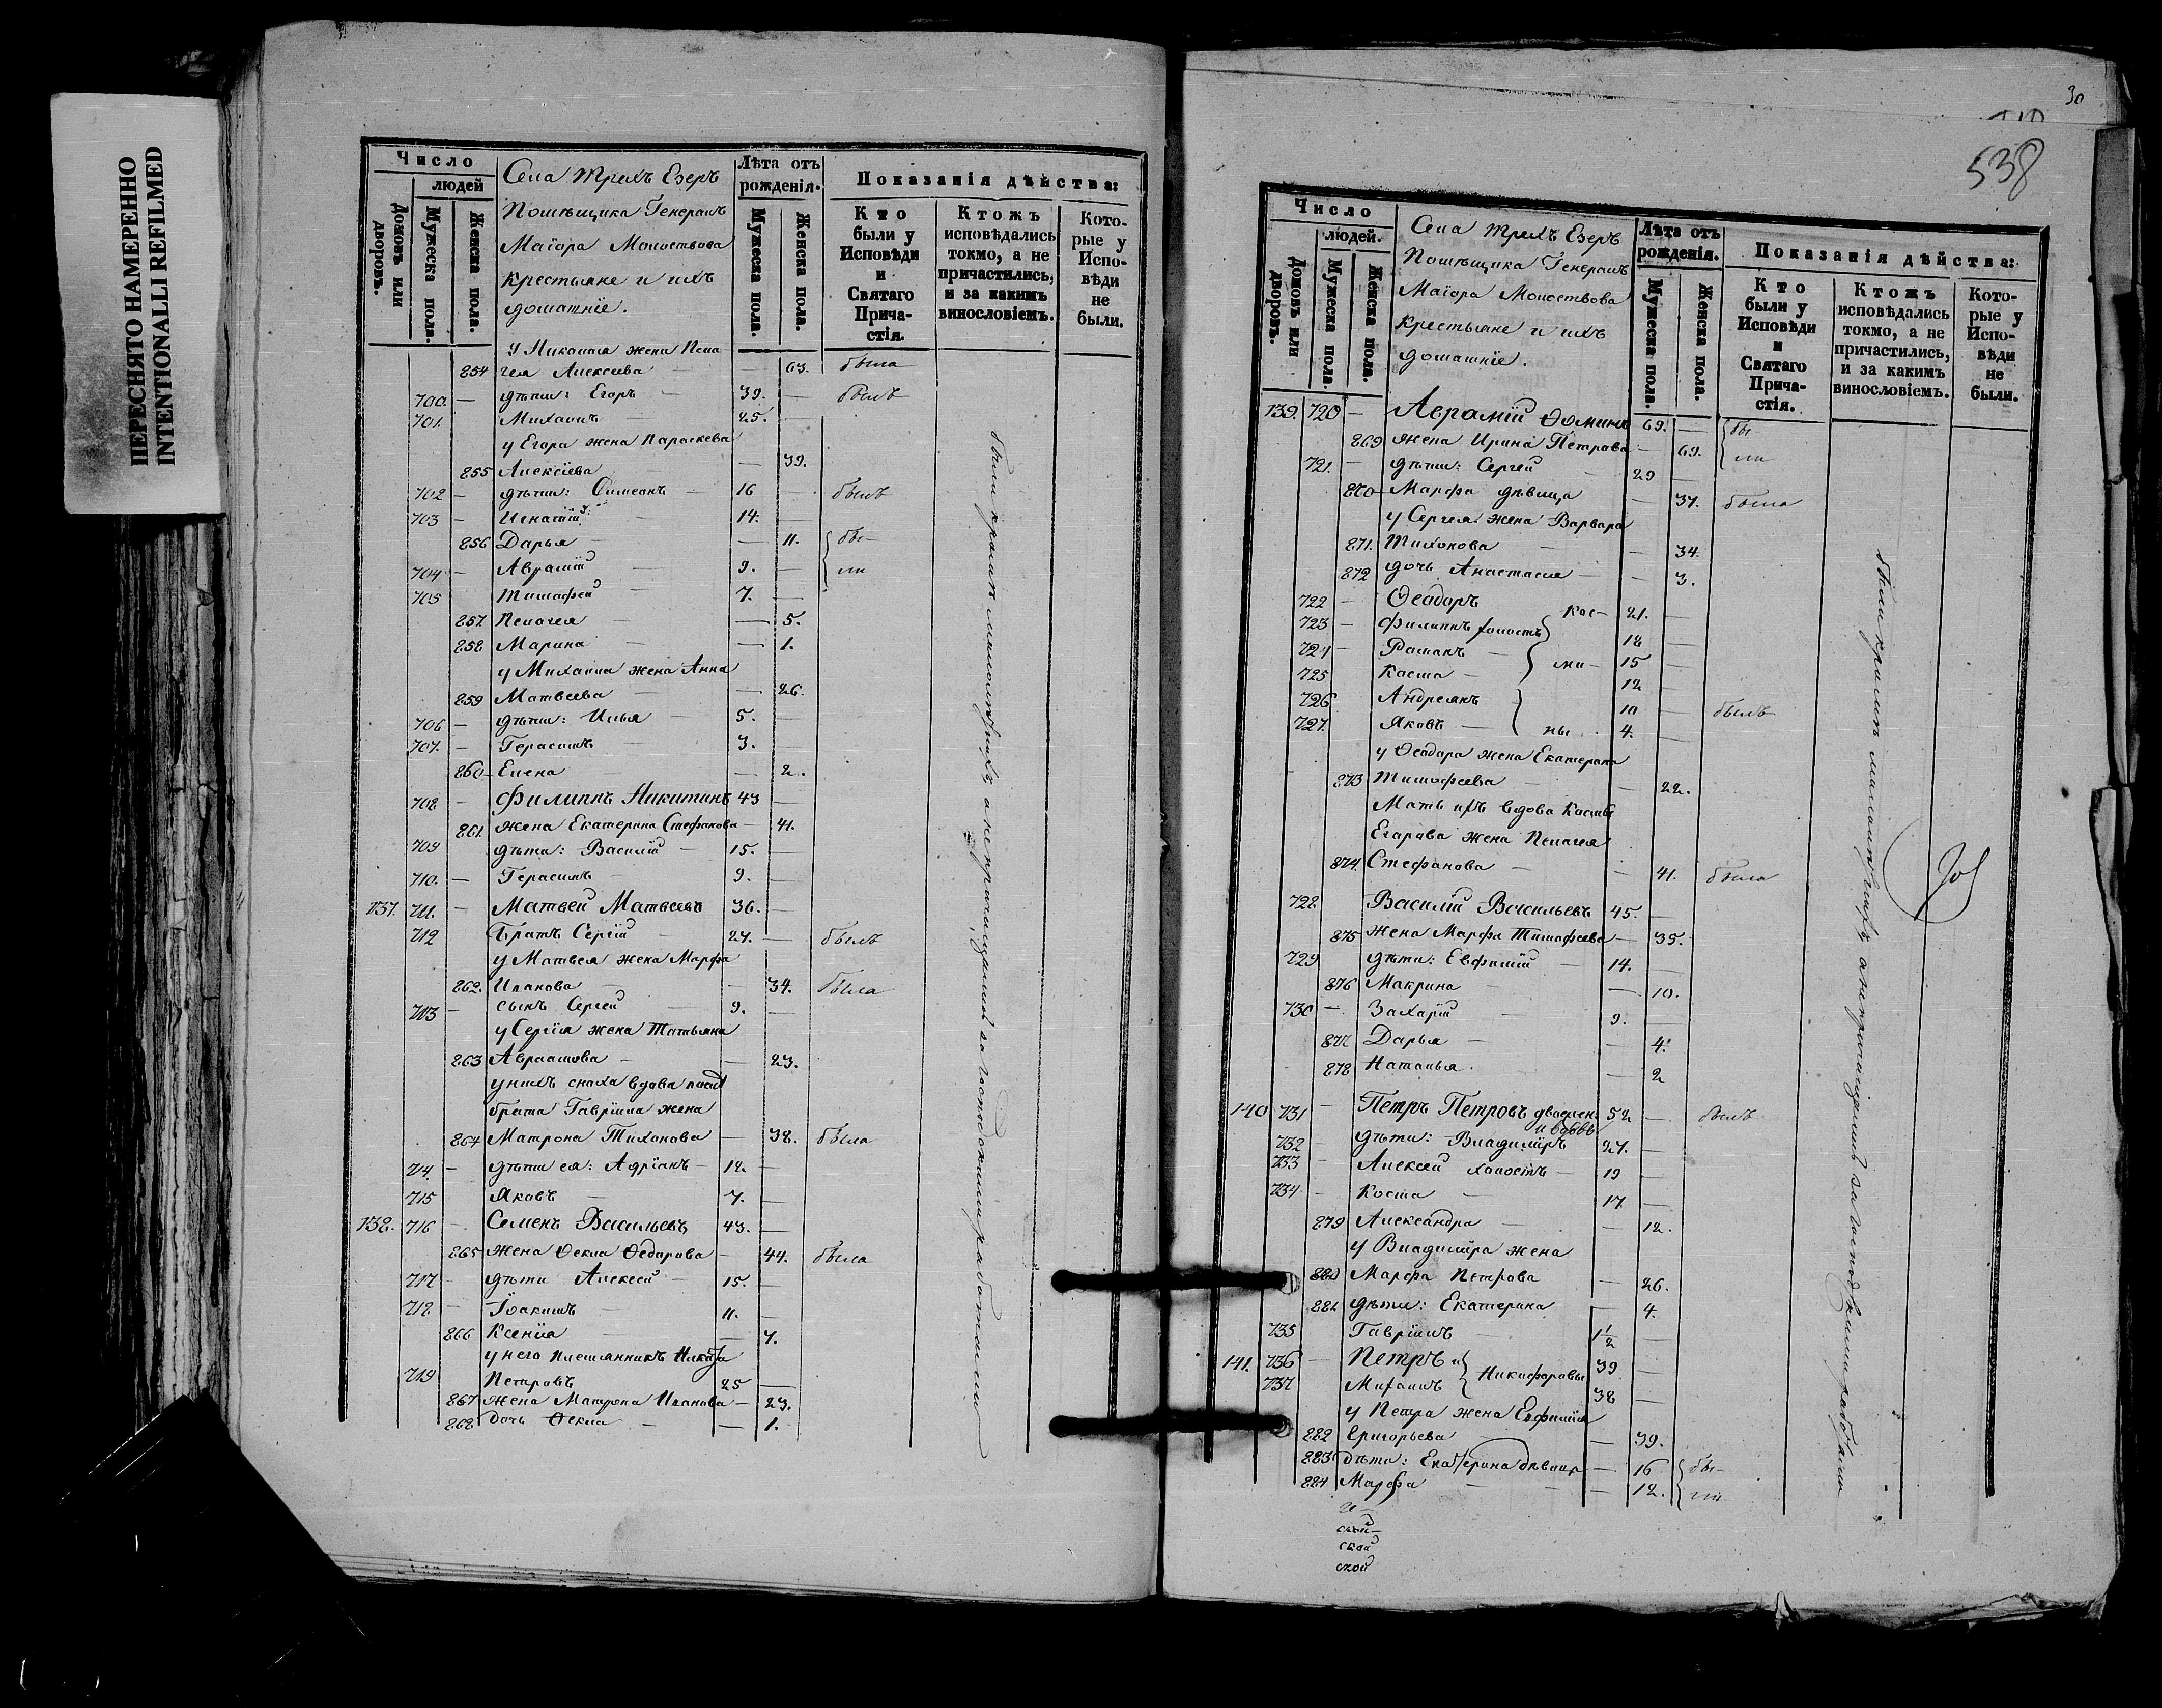 ПЕРЕСНЯТО НАМЕРЕННО
INTENTIONALLI REFILMED
Число
людей
Домовъ или дворовъ.
Мужеска пола.
Женска пола.
Села Трехъ Езеръ
Помѣщика Генералъ
Маіора
Крестьяне и ихъ
домашніе.
Лѣта отъ рожденія.
Мужеска пола.
Женска пола.
Показанія дѣйства:
Кто были у Исповѣди и Святаго Причастія.
Ктожъ исповѣдались токмо, а не причастились, и за какимъ винословіемъ.
Которые у Исповѣди не были.
у Николая жена Пела
854 гея Алексѣева — 63. была
700. — дѣти: Егоръ — 39. — былъ
701. Михаилъ — 25. —
у Егора жена Параскева
855 Алексіева — 39.
702 — дѣти: Симеонъ — 16 — былъ
703 — Игнатій — 14. —
856 Дарья — 11. бы-
704 — Аврамій — 9. — ли
705 Тимофей — 7. —
857. Пелагея — 5.
858 Марина — 1.
у Михаила жена Анна
859 Матвѣева — 26.
706 — дѣти: Илья — 5. —
707. — Герасимъ — 3. —
860 — Елена — 2.
708 — Филиппъ Никитинъ 43 —
861. жена Екатерина Стефанова — 41.
709 дѣти: Василій — 15. —
710. — Герасимъ — 9. —
137. 711. — Матвей Матвеевъ 36. —
712 Братъ Сергій — 27. — былъ
у Матвея жена Марфа
862. Иванова — 34. была
713 — сынъ Сергей 9. —
у Сергія жена Татьяна
863 Авраамова — 23.
у нихъ сноха вдова
брата Гавріила жена
864 Матрона Тихонова — 38. была
714. — дѣти ея: Адріанъ — 12 —
715 Яковъ — 7. —
138. 716 — Семенъ Васильевъ 43. —
865 жена Ѳекла Ѳедорова — 44. была
717 — дѣти Алексей — 15. —
718 — Іоакимъ — 11. —
866 Ксенія — 7.
у него племянникъ
719 Петровъ 25 —
867 жена Матрона Иванова — 23.
868 Дочь Ѳекла — 1.
были кромѣ малолѣтнихъ а не причащались за господскими работами
30
538
Число
людей.
Домовъ или дворовъ.
Мужеска пола.
Женска пола.
Села Трехъ Езеръ
Помѣщика Генералъ
Маіора
Крестьяне и ихъ
домашніе.
Лѣта отъ рожденія.
Мужеска пола.
Женска пола.
Показанія дѣйства:
Кто были у Исповѣди и Святаго Причастія.
Ктожъ исповѣдались токмо, а не причастились, и за какимъ винословіемъ.
Которые у Исповѣди не были.
139. 720 — Аврамій Ѳоминъ 69. — бы-
869 жена Ирина Петрова — 69. ли
721. — дѣти: Сергей 29 —
870 Марфа дѣвица — 37. была
у Сергея жена Варвара
871. Тихонова — 34.
872 дочь Анастасія — 3.
722 — Ѳеодоръ Кос- 21. —
723 — Филиппъ холостъ 18 —
724 — Романъ — ми- 15 —
725 Косма — 12 —
726 Андреянъ 10 — былъ
727. Яковъ — ны 4. —
у Ѳеодора жена Екатерина
873 Тимофеева — 22.
Мать ихъ вдова Космы
Егорова жена Пелагея
874. Стефанова — 41. была
728 Василій Васильевъ 45. —
875 жена Марфа Тимофеева — 35.
729 дѣти: Евфимій — 14. —
876 Макрина — 10.
730 — Захарій 9. —
877 Дарья — 4.
878 Наталья — 2
140 731 — Петръ Петровъ 52 — былъ
732 — дѣти: Владиміръ 27. —
733 — Алексей холостъ — 19 —
734 — Косма — 17 —
879 Александра — 12.
у Владиміра жена
880 Марфа Петрова — 26.
881 дѣти: Екатерина — 4.
735 Гавріилъ — 1½ —
141. 736 — Петръ и Никифоровы 39 —
737 Михаилъ 38 —
у Петра жена Евфимія
882 Григорьева — 39.
883 дѣти: Екатерина дѣвица — 16 бы-
884 Марфа — 12. ли
были кромѣ малолѣтнихъ а не причащались за господскими работами
ской
ской